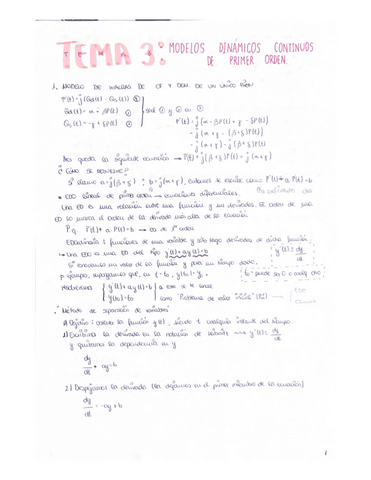 TEMA 3: MODELOS DINÁMICOS CONTINUOS
DE PRIMER ORDEN.
1. MODELO DE WALRAS DE OF Y DDA. DE UN ÚNICO BIEN
P'(t) = j(Qd(t) - Qs(t)) ①
Qd(t) = α - βP(t) ②
Qs(t) = -γ + δP(t) ③
P'(t) = j(α - βP(t) + γ - δP(t))
= j(α + γ - (β+δ)P(t))
= j(α+γ) - j(β+δ)P(t)
Nos queda la siguiente ecuación → P'(t) + j(β+δ)P(t) = j(α+γ)
¿Cómo se resuelve?
Si llamo a = j(β+δ) y b = j(α+γ), entonces se escribe como P'(t) + a P(t) = b
EDO lineal de primer orden → ecuaciones diferenciales.
Una ED es una relación entre una función y sus derivadas. El orden de una
ED lo marca el orden de la derivada más alta de la ecuación.
P'(t) + a P(t) = b → es de 1er orden
EDOrdinaria: funciones de una variable y sólo hay derivadas de dicha función.
Una EDO es una ED del tipo y'(t) + ay(t) = b
y'(t) = dy/dt
Si conocemos un valor de la función y para un tiempo dado,
por ejemplo, supongamos que, en t = t₀, y(t₀) = y₀
t₀ puede ser 0 o cualq. otro
resolvemos y'(t) + ay(t) = b
y(t₀) = y₀
como "Problema de valor inicial" (PVI)
EDO
Condición inicial
Método de separación de variables
Objetivo: conocer la función y(t), siendo t cualquier instante del tiempo
1) Escribimos la derivada en la notación de Leibniz → y'(t) = dy/dt
y quitamos la dependencia en y
dy/dt + ay = b
2) Despejamos la derivada (la dejamos en el primer miembro de la ecuación)
dy/dt = -ay + b
1